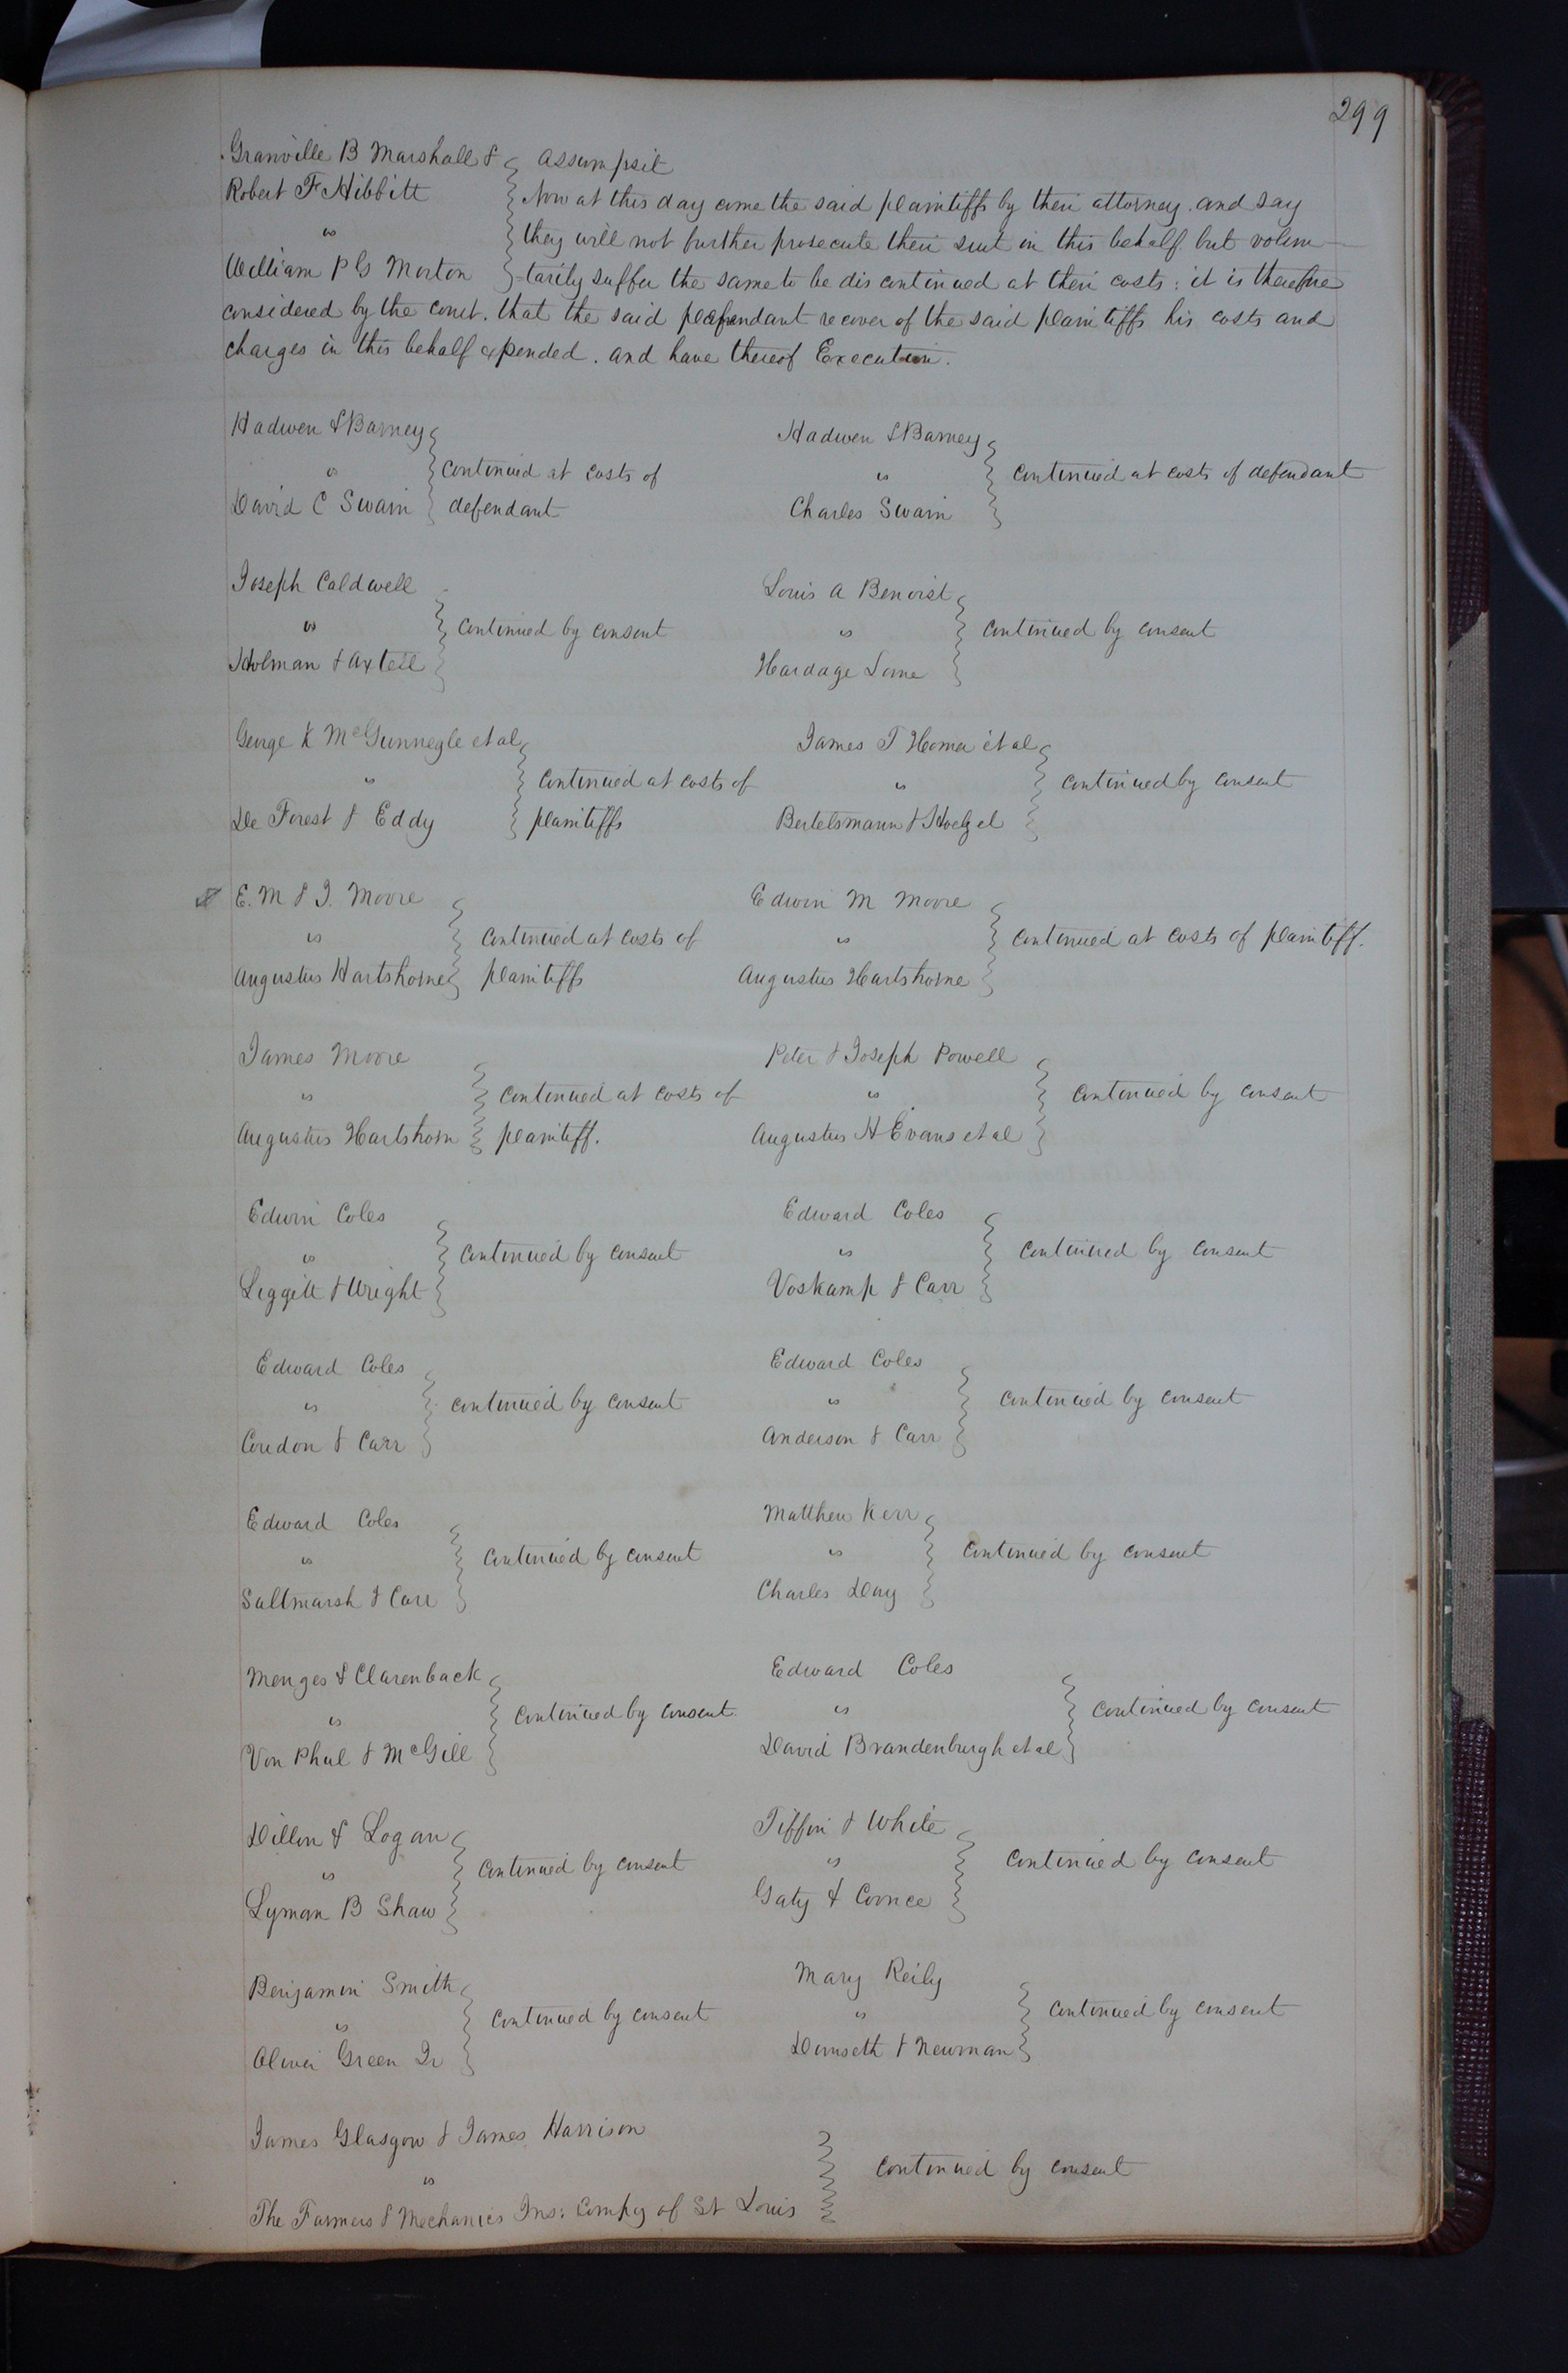 299
Granville B Marshall & Assumpsit
Robert F Hibbitt Now at this day come the said plaintiffs by their attorney. and say
vs they will not further prosecute their suit in this behalf but volun-
William P G Morton tarily suffer the same to be discontinued at their costs: it is therefore
considered by the court. that the said defendant recover of the said plaintiffs his costs and
charges in this behalf expended. and have thereof Execution.
Hadwen & Barney
vs Continued at costs of
David C Swain defendant
Hadwen & Barney
vs Continued at costs of defendant
Charles Swain
Joseph Caldwell
vs Continued by consent
Holman & Axtell
Louis A Benoist
vs Continued by consent
Hardage Lane
George K McGunnegle et al
vs Continued at costs of
De Forest & Eddy plaintiffs
James T Homer et al
vs Continued by consent
Bertelsmann & Hoelzel
E. M & J. Moore
vs Continued at costs of
Augustus Hartshorne plaintiffs
Edwin M Moore
vs Continued at costs of plaintiff.
Augustus Hartshorne
James Moore
vs Continued at costs of
Augustus Hartshorn plaintiff.
Peter & Joseph Powell
vs Continued by consent
Augustus H Evans et al
Edwin Coles
vs Continued by consent
Leggett & Wright
Edward Coles
vs Continued by consent
Voskamp & Carr
Edward Coles
vs Continued by consent
Coudon & Carr
Edward Coles
vs Continued by consent
Anderson & Carr
Edward Coles
vs Continued by consent
Saltmarsh & Carr
Matthew Kerr
vs Continued by consent
Charles Deny
Menges & Clarenback
vs Continued by consent
Von Phul & McGill
Edward Coles
vs Continued by consent
David Brandenburgh et al
Dillon & Logan
vs Continued by consent
Lyman B Shaw
Tiffin & White
vs Continued by consent
Gaty & Coonce
Benjamin Smith
vs Continued by consent
Oliver Green Jr
Mary Reily
vs Continued by consent
& Newman
James Glasgow & James Harrison
vs Continued by consent
The Farmers & Mechanics Ins: Compy of St Louis